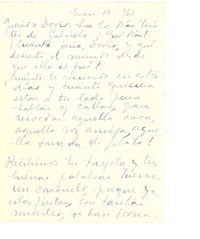 Enero 10 - 961
Querida Doris. Son los días tristes
tes de Gabriela, ¡Qué días!
¡Cuánta pena, Doris, y qué
desierto el mundo desde
que ella se fué!
¡Cuánto te recuerdo en estos
días y cuánto quisiera
estar a tu lado para
hablar y callar, para
recordar aquella cara,
aquella voz amiga, aque-
lla sonrisa de plata!
Recibimos tu tarjeta y tus
buenas palabras fueron
un consuelo porque ya
estas fiestas con tantas
muertes, se han torna-